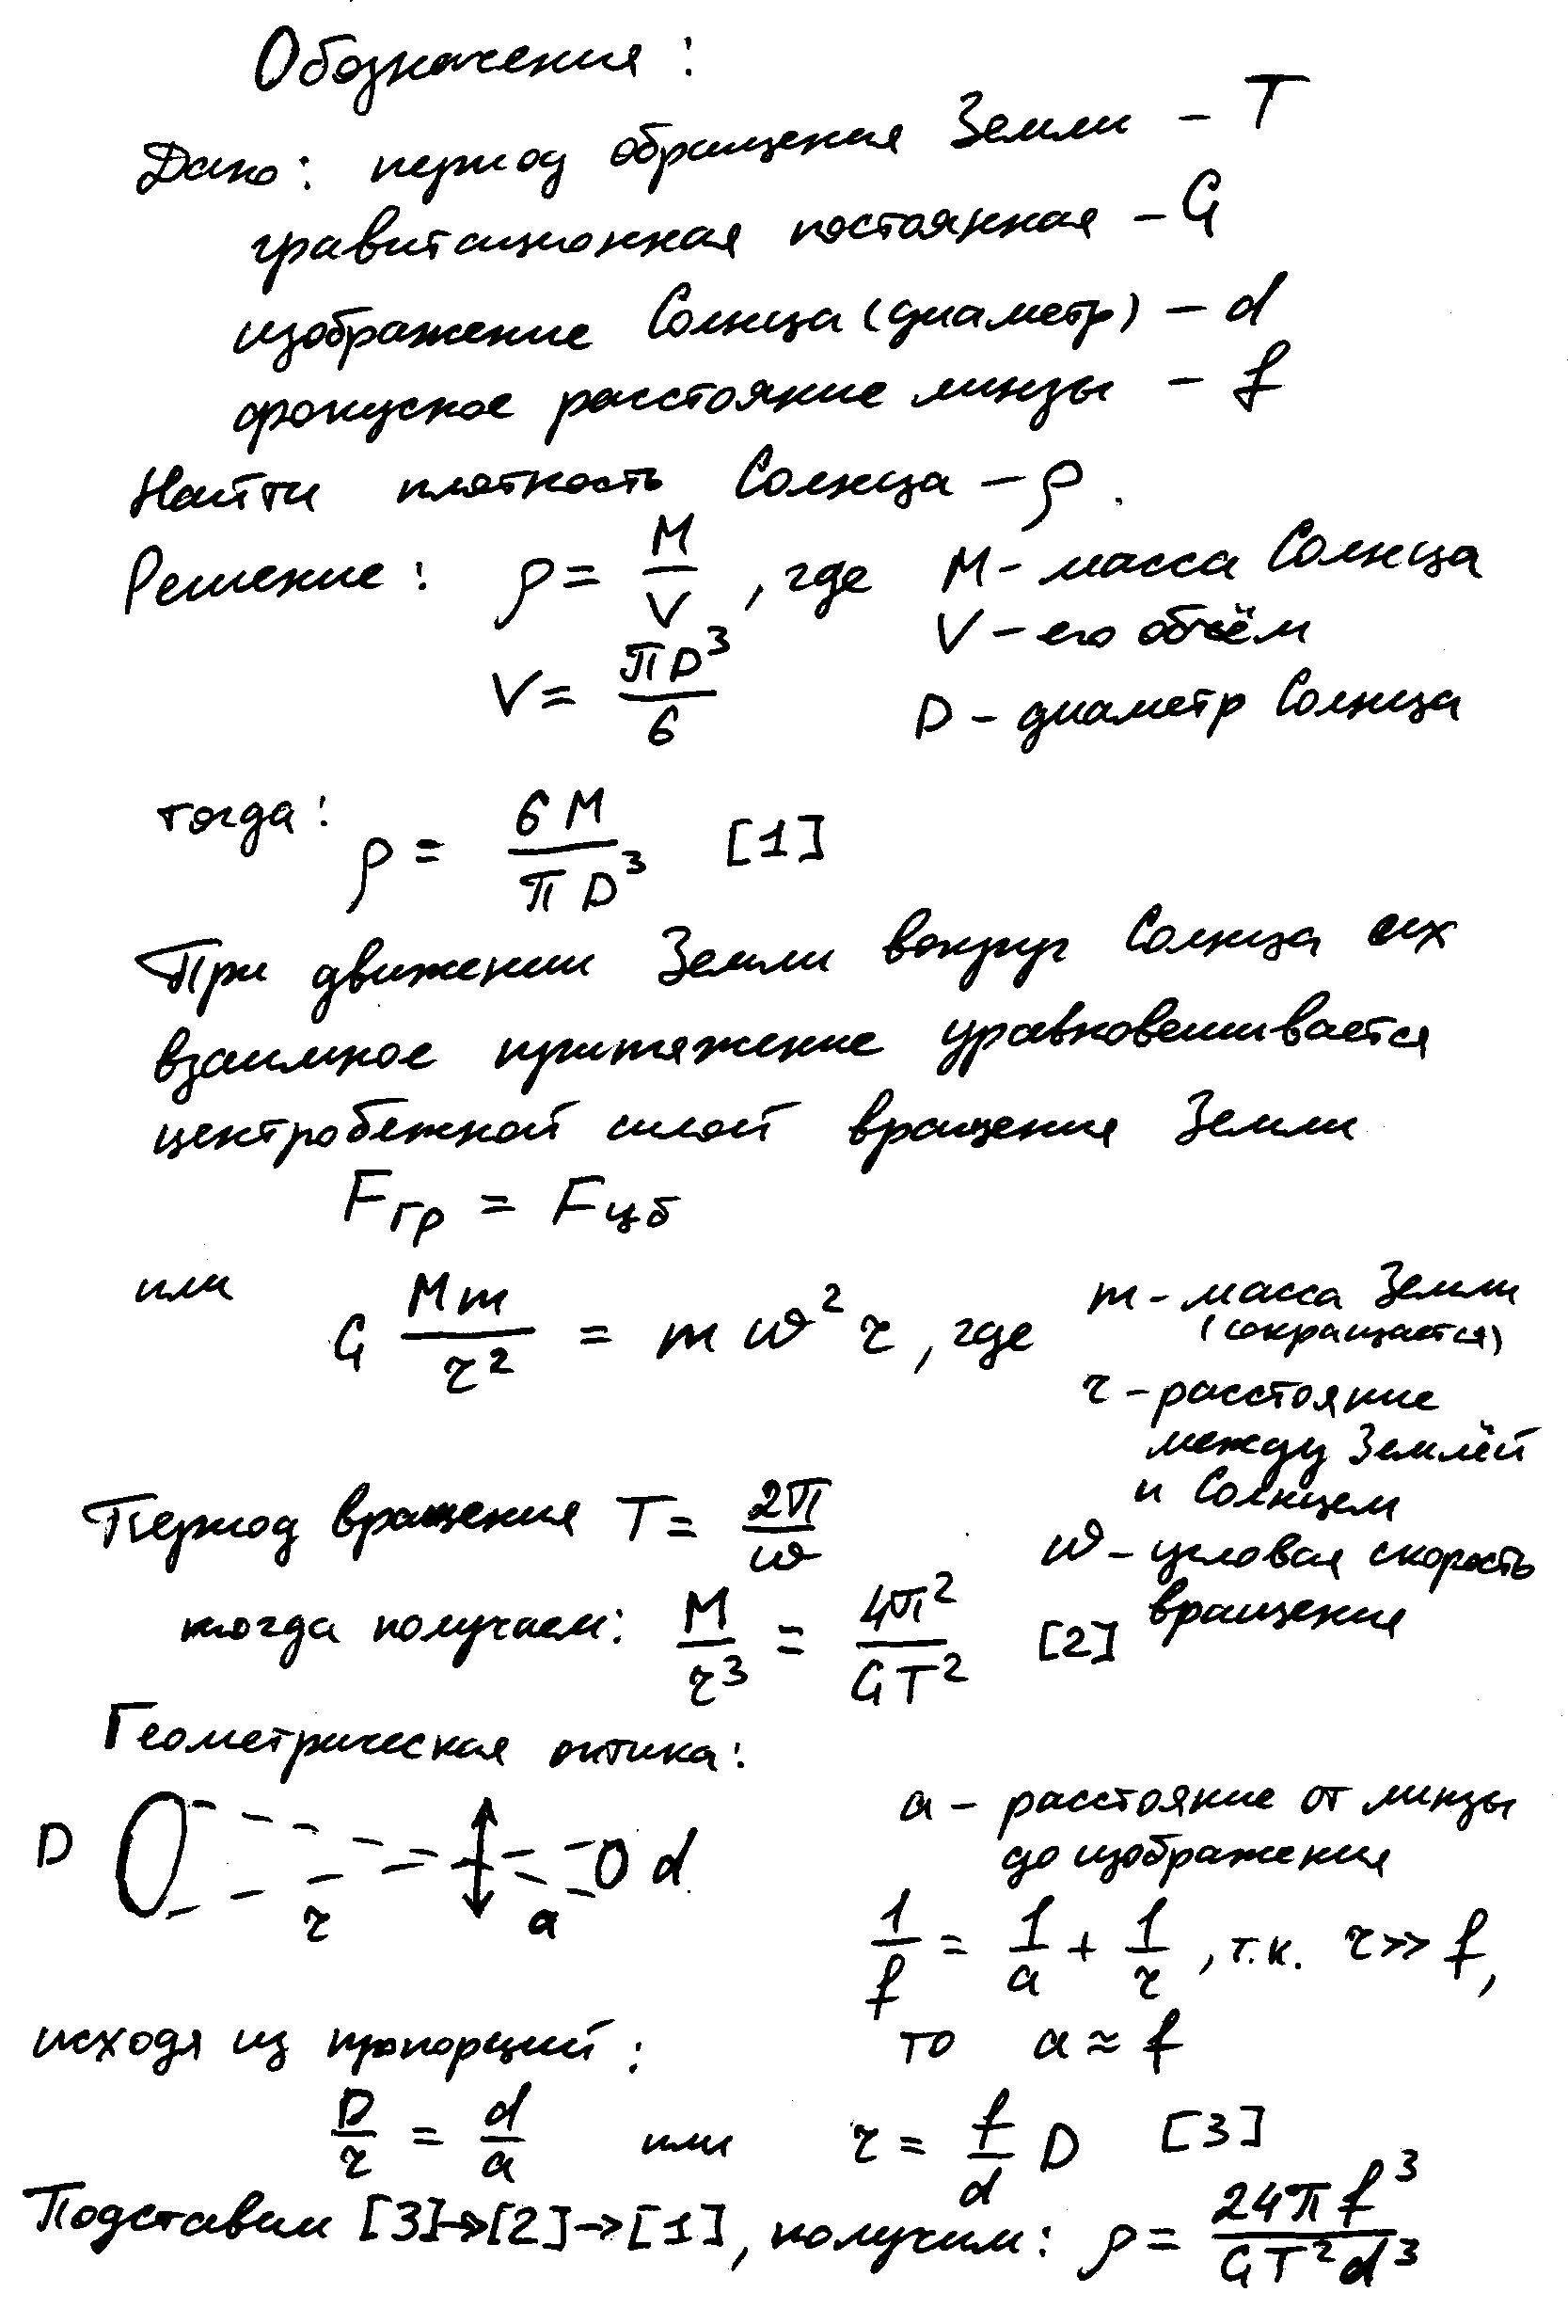 Обозначения:
Дано: период обращения Земли – T
гравитационная постоянная – G
изображение Солнца (диаметр) – d
фокусное расстояние линзы – f
Найти плотность Солнца – ρ.
Решение: ρ = M/V, где M – масса Солнца
V – его объём
V = πD³/6
D – диаметр Солнца
тогда: ρ = 6M/πD³ [1]
При движении Земли вокруг Солнца их
взаимное притяжение уравновешивается
центробежной силой вращения Земли
Fгр = Fцб
или G Mm/r² = m ω² r, где
m – масса Земли
(сокращается)
r – расстояние
между Землёй
и Солнцем
ω – угловая скорость
вращения
Период вращения T = 2π/ω
тогда получаем: M/r³ = 4π²/GT² [2]
Геометрическая оптика:
D r a d
a – расстояние от линзы
до изображения
1/f = 1/a + 1/r, т.к. r >> f,
то a ≈ f
исходя из пропорций:
D/r = d/a или r = f/d D [3]
Подставим [3]→[2]→[1], получим: ρ = 24πf³/GT²d³